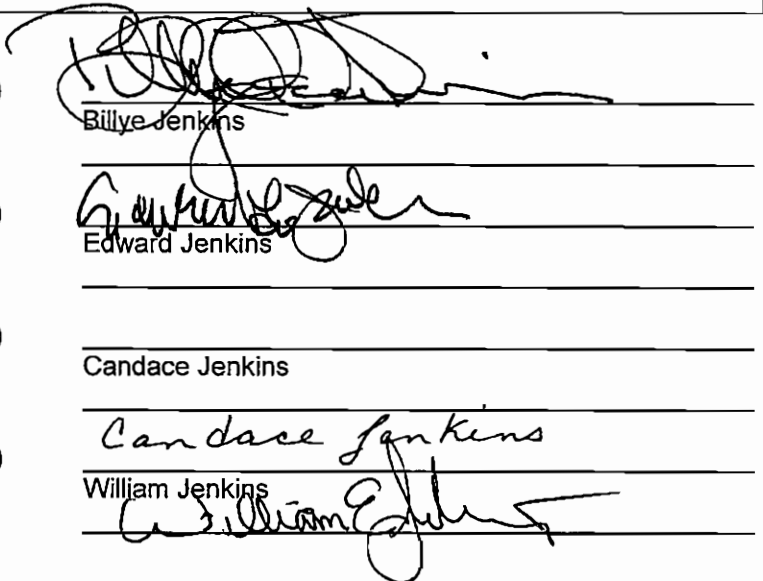 Billye Jenkins
Edward
Edward Jenkins
Candace Jenkins
Candace Jenkins
William Jenkins
William E